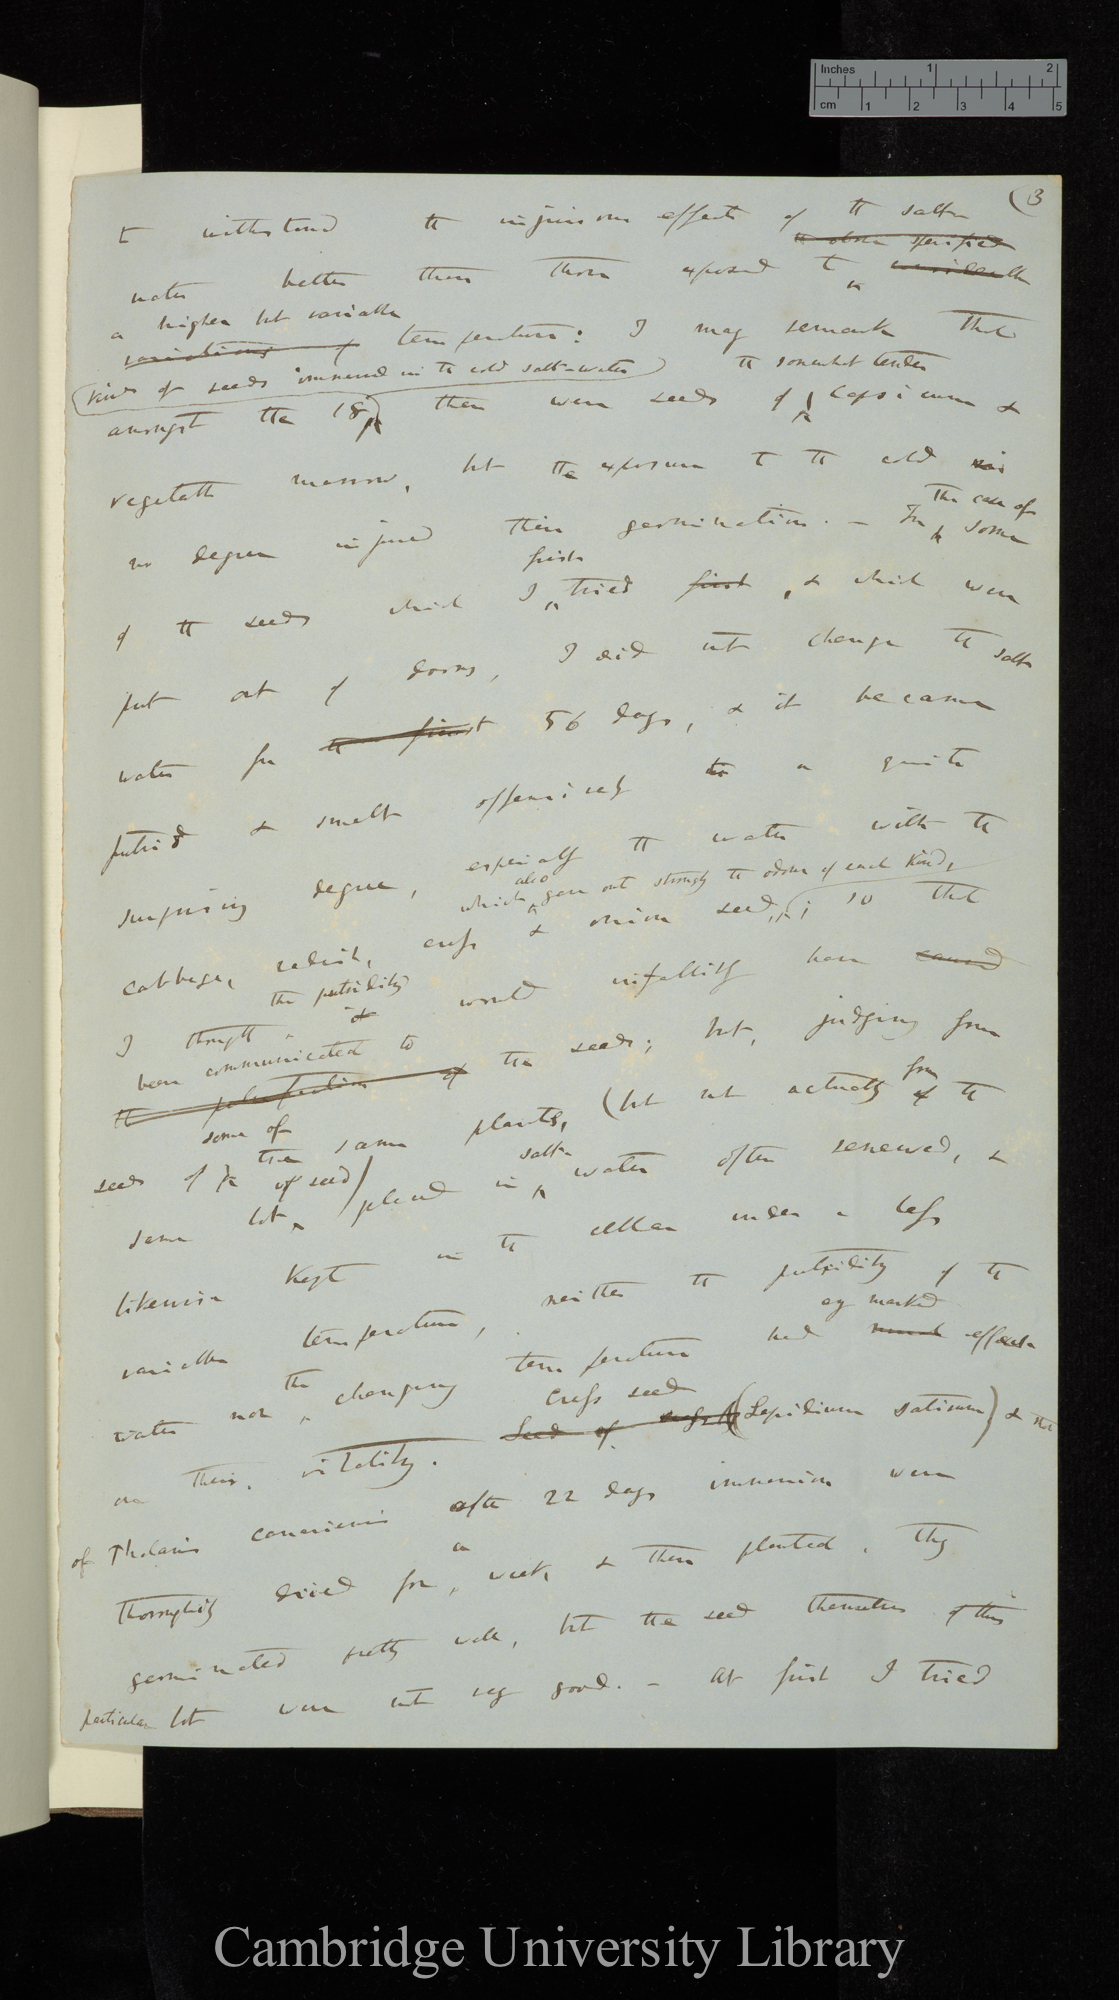 (3
to withstand the injurious effects of the salt-
the above specified
water better than those exposed to
a higher but variable
variations of temperature: I may remark that
(kinds of seeds immersed in the cold salt-water) the somewhat tender
amongst the 18 there were seeds of Capsicum &
vegetable marrow, but the exposure to the cold
The case of
no degree injured their germination. — In some
first
of the seeds which I tried first, & which were
put out of doors, I did not change the salt
water for the first 56 days, & it became
putrid & smelt offensively to a quite
surprising degree, especially the water with the
also
which gave out strongly the odour of each kind,
cabbage, radish, cress & onion seed; so that
the putridity
I thought it would infallibly have caused
been communicated to
the putrefaction of the seeds; but, judging from
some of from
seeds of the same plants, (but not actually of the
of seed) salt
same lot, placed in water often renewed, &
likewise kept in the cellar under a less
variable temperature, neither the putridity of the
any marked
water nor the changing temperature had much effect
cress seed
on their vitality. Seed of cress (Lepidium sativum) & that
of Phalaris canariensis after 22 days immersion were
a
thoroughily dried for week, & then planted. They
germinated pretty well, but the seed themselves of this
particular lot were not very good. — At first I tried
Inches 1 2
cm 1 2 3 4 5
Cambridge University Library